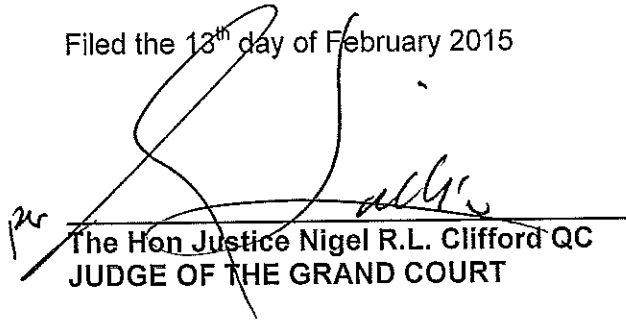 Filed the 13th day of February 2015
per
The Hon Justice Nigel R.L. Clifford QC
JUDGE OF THE GRAND COURT